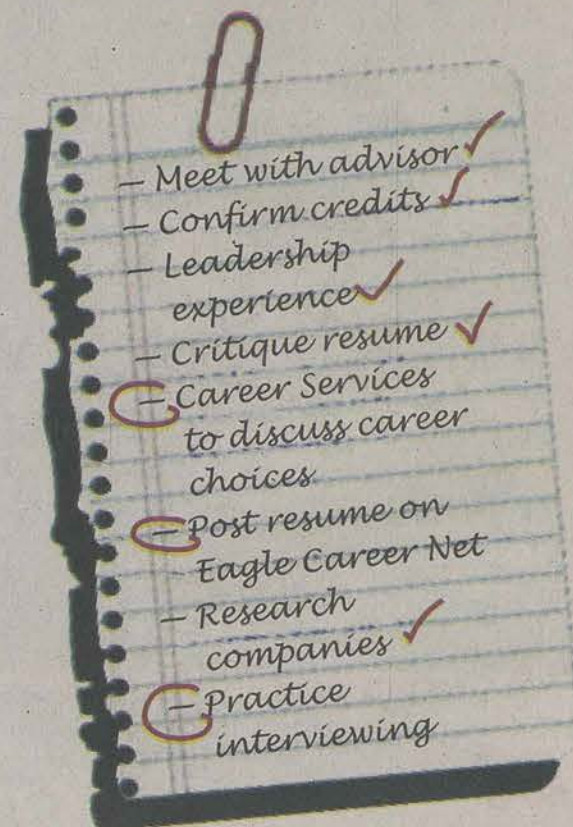 — Meet with advisor
— Confirm credits
— Leadership
experience
— Critique resume
— Career Services
to discuss career
choices
— Post resume on
Eagle Career Net
— Research
companies
— Practice
interviewing